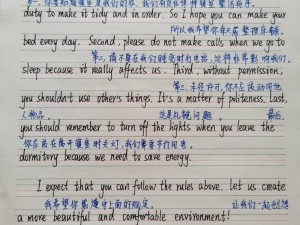 duty to make it tidy and in order. So I hope you can make your
所以我希望你每天要整理床铺
bed every day. Second, please do not make calls when we go to
sleep because it really affects us. Third, without permission,
you shouldn't use other's things. It's a matter of politeness. Last,
人物品 这是礼貌问题 最后
you should remember to turn off the lights when you leave the
dormitory because we need to save energy.
I expect that you can follow the rules above. let us create
我希望你能遵守上面的规定。 让我们一起创造
a more beautiful and comfortable environment!